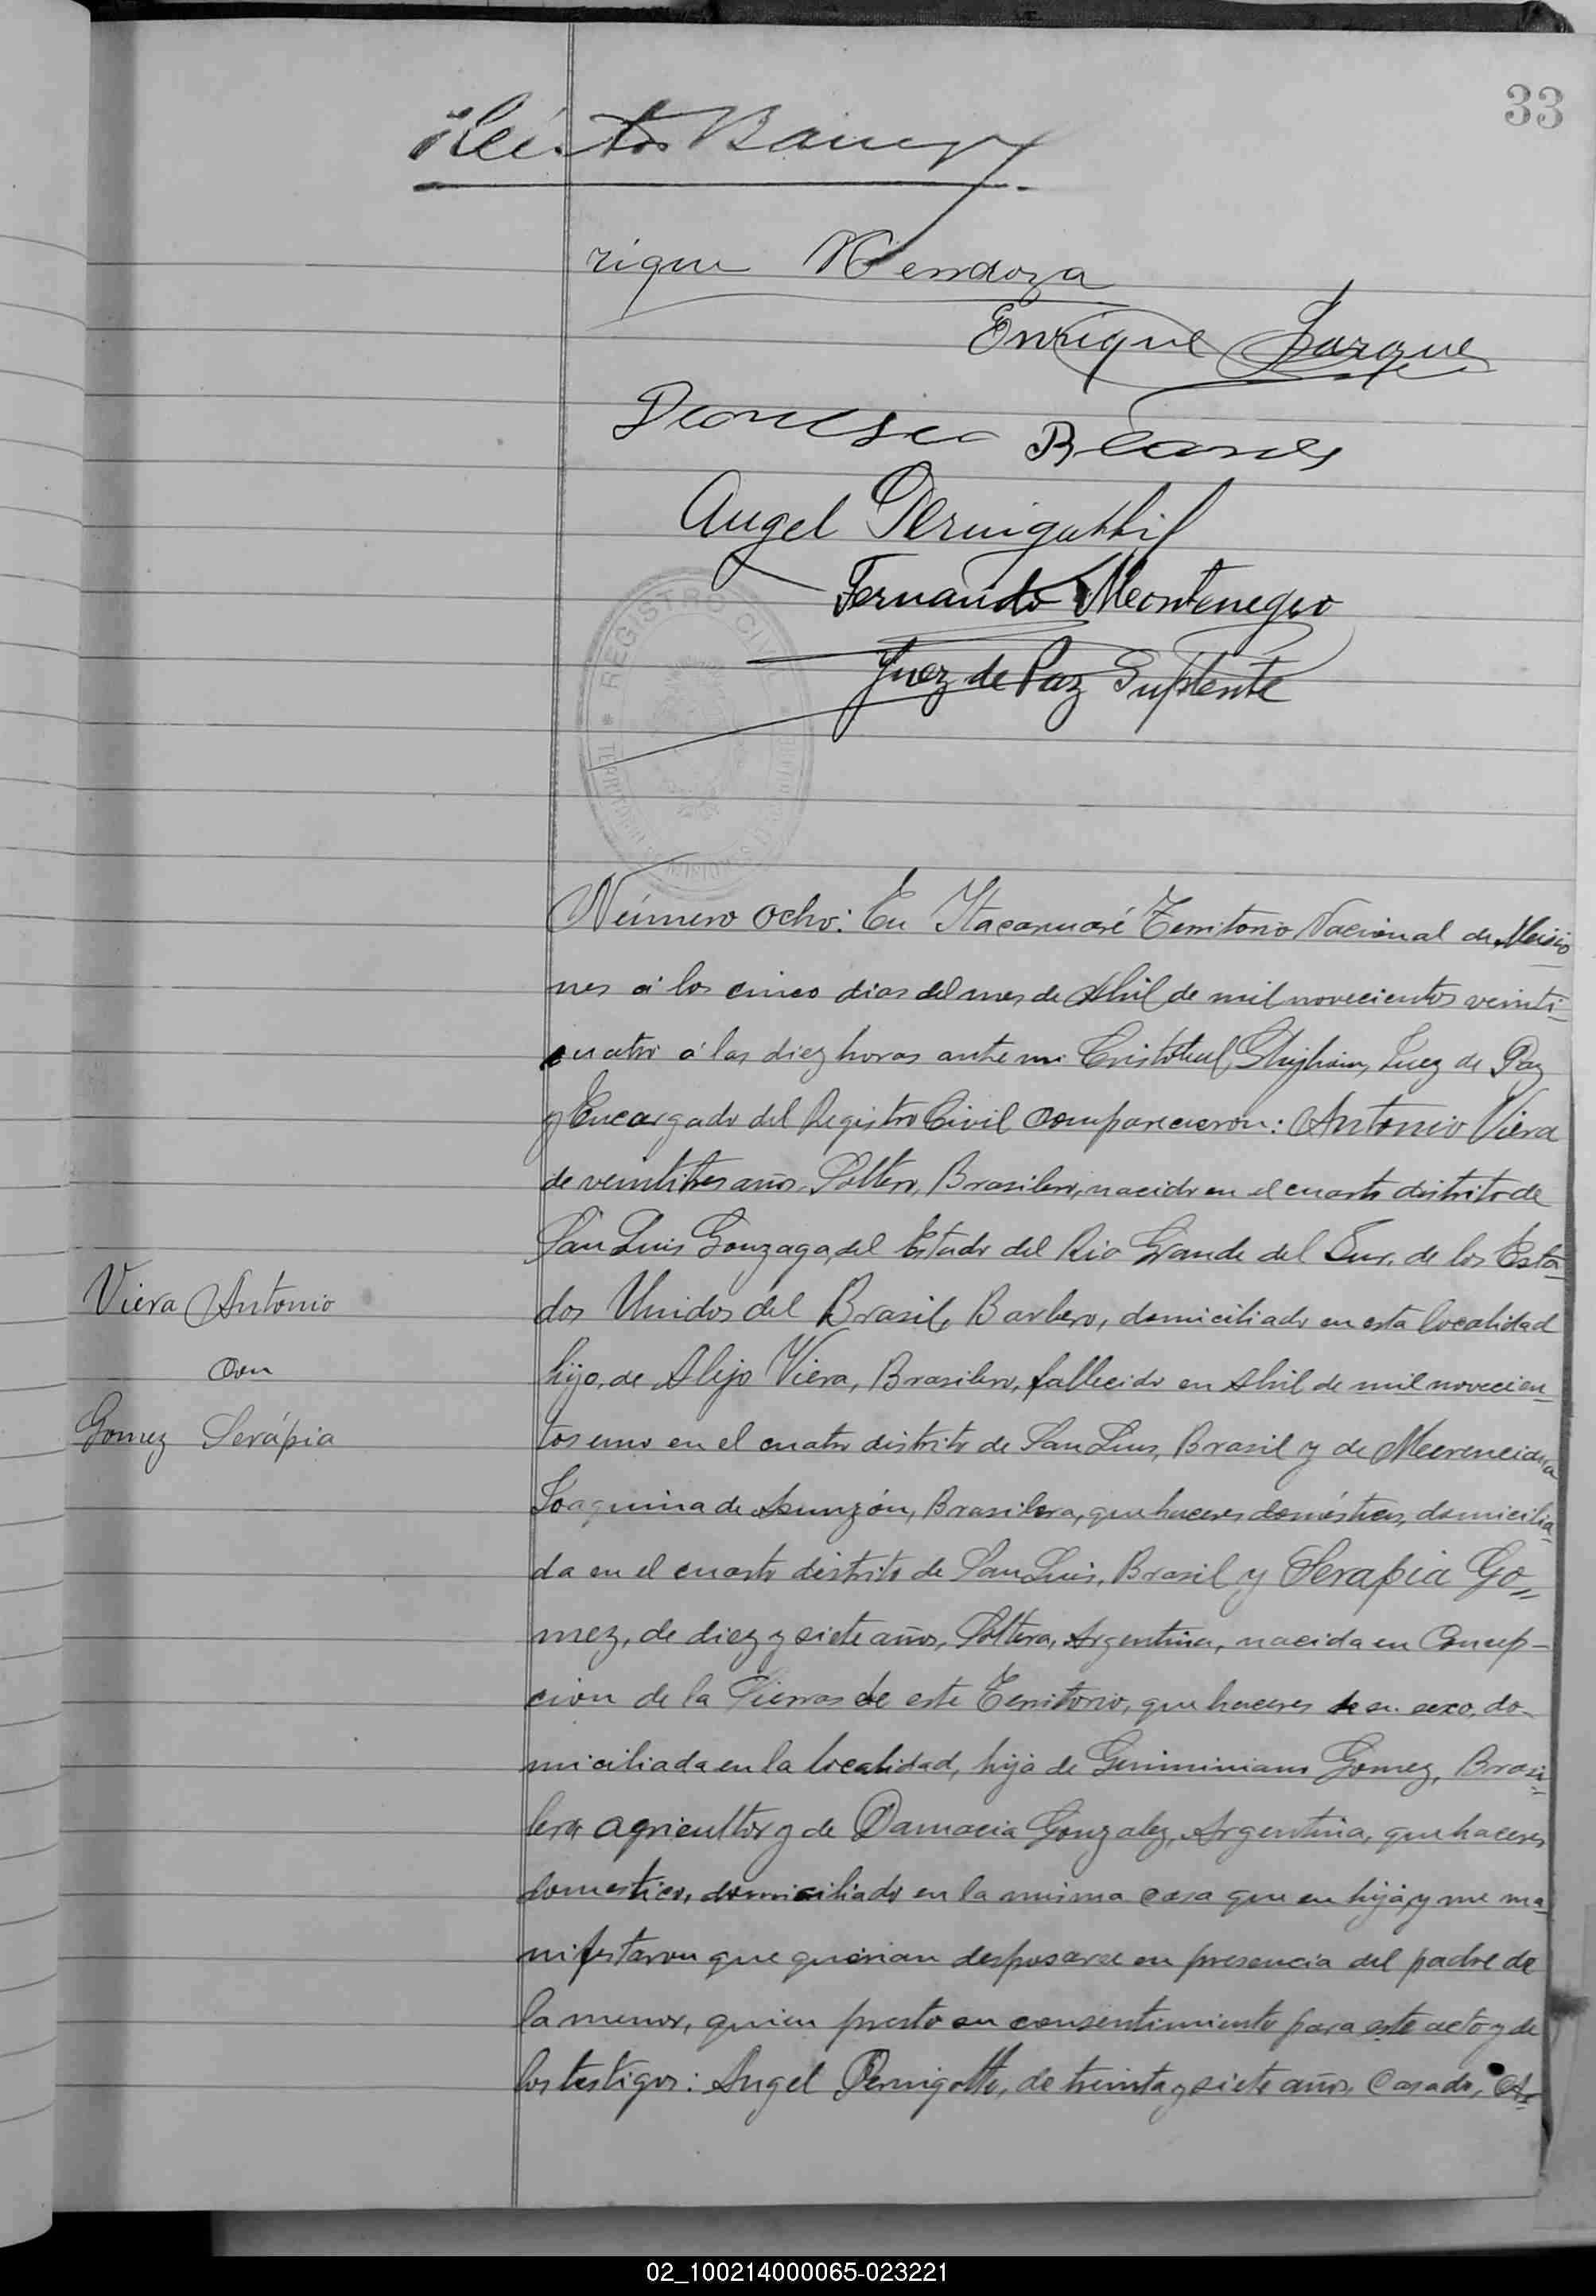 33
Héctor
rique Mendoza
Enrique
Angel
Fernando Montenegro
Juez de Paz Suplente
REGISTRO CIVIL
Número ocho: En Itacaruaré Territorio Nacional de Misio
nes á los cinco dias del mes de Abril de mil novecientos veinti-
cuatro á las diez horas ante mi Cristobal Juez de Paz
y Encargado del Registro Civil comparecieron: Antonio Viera
de veintitres años, Soltero, Brasilero, nacido en el cuarto distrito de
San Luis Gonzaga, del Estado del Rio Grande del Sur, de los Esta-
dos Unidos del Brasil, Barbero, domiciliado en esta localidad
Viera Antonio
con
Gomez Serápia
hijo, de Alejo Viera, Brasilero, fallecido en Abril de mil novecien-
tos uno en el cuatro distrito de San Luis, Brasil y de Merenciana
Joaquina de Asunzón, Brasilera, quehaceres domésticos, domicilia-
da en el cuarto distrito de San Luis, Brasil y Serapia Go=
mez, de diez y siete años, Soltera, Argentina, nacida en Concep-
cion de la Sierras de este Territorio, que haceres de su sexo, do-
miciliada en la localidad, hija de Geminiano Gomez, Brasi=
lero agricultor y de Damacia Gonzalez, Argentina, que haceres
domestico, domiciliado en la misma casa que su hija, y me ma-
nifestaron que querian desposarse en presencia del padre de
la menor, quien presto su consentimiento para este acto y de
los testigos: Angel Pernigotti, de treinta y siete años, Casado, Ar
02_100214000065-023221